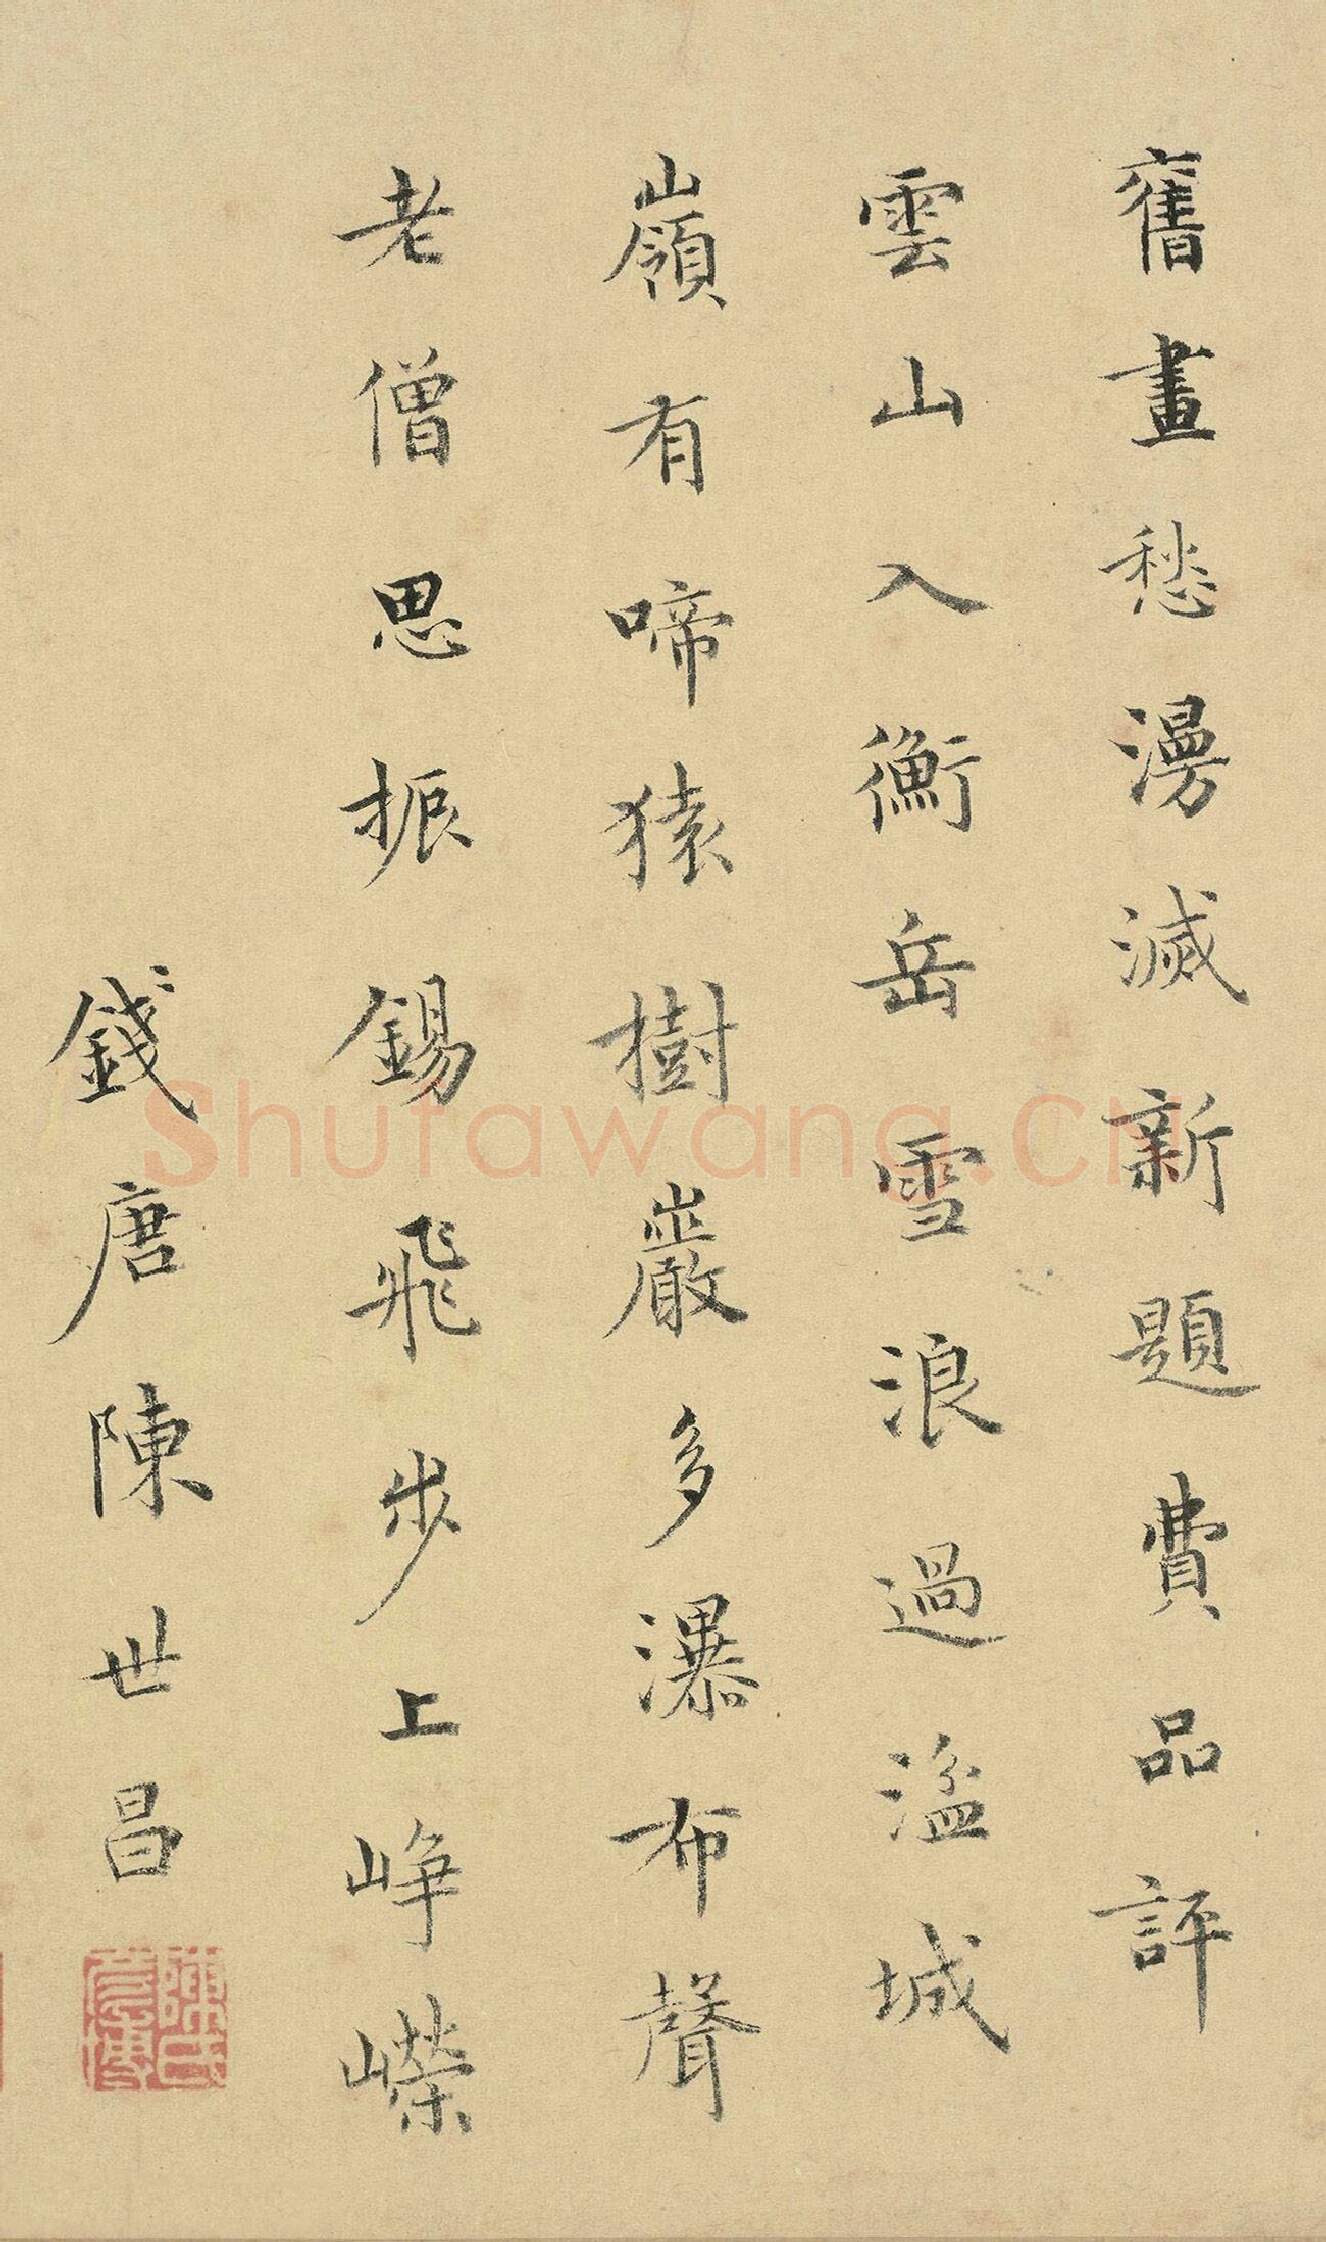 舊畫愁漫滅新題費品評
雲山入衡岳雪浪過湓城
嶺有啼猿樹巖多瀑布聲
老僧思振錫飛步上崢嶸
錢唐陳世昌
shufawang.cn